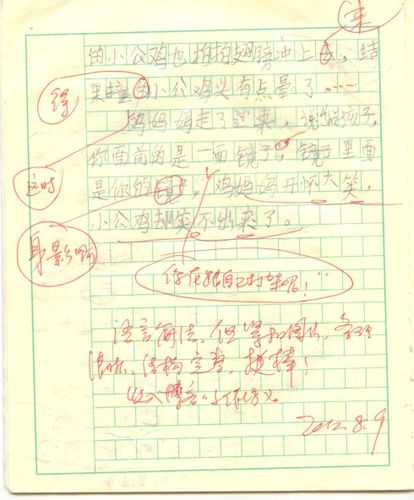 来
的小公鸡也拍拍翅膀冲上，结
得
果撞的小公鸡又有点晕了……
鸡妈妈走了过来，说孩子，
你面前的是一面镜子，镜子里面
这时
是你的，鸡妈妈开怀大笑，
小公鸡却笑不出来了。
身影啊
你在跟自己打架呢！"
语言简洁，但紧扣图，条理
清晰，结构完整，挺棒！
收入博客
2012.8.9